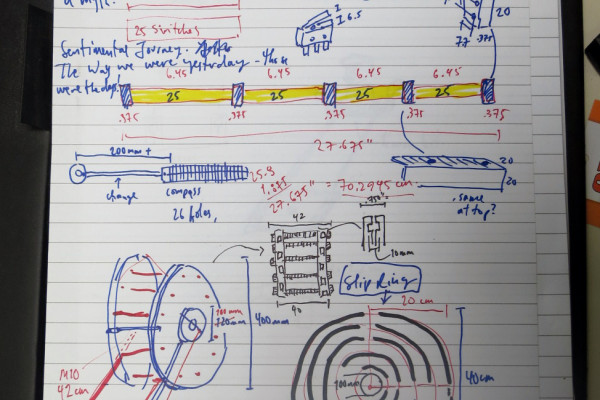 25 Switches
I
I 6.5
20
77 .375
Sentimental Journey.
The way we were yesterday - this is
were the days!
6.45 6.45 6.45 6.45
25 25 25 25
.375 .375 .375 .375 .375
27.675"
200mm +
change
compass
26 holes,
25.8
1.875
27.675" = 70.2945 cm
20
20
same
at top?
42
.750"
10mm
90
Slip Ring
20 cm
100mm
720mm
400mm
M10
42cm
100mm
40cm